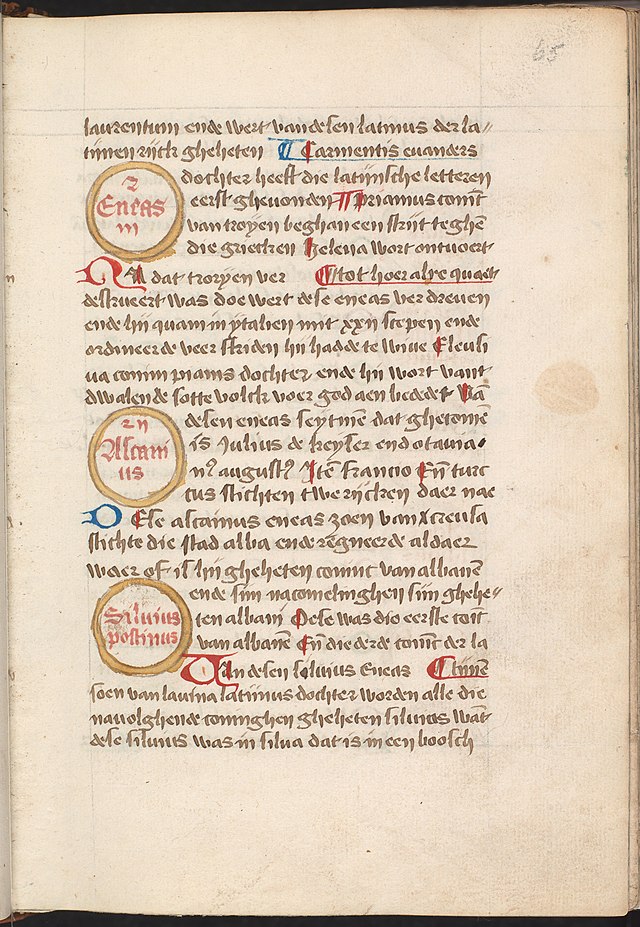 65
laurentum ende wert van desen latinus der la„
tijnen rijck gheheten ¶ Carmentis euanders
dochter heeft die latijnsche letteren
2
Eneas
iii
eerst gheuonden ¶ Priamus coninc
van troyen beghan een strijt teghē
die griecken Helena wort ontvoert
Na dat troryen ver ¶ tot hoer alre quaet
destrueert was doe wert dese eneas verdreuen
ende hij quam in ytalien mit xxii scepen ende
ordineerde veer striden hij hadde te wiue Eleusi
ua coninc priams dochter ende hij wort vant
dwalende sotte volck voer god aen bedede Uā
desen eneas seytmē dat ghecomē
2 ij
Ascani
us
is Julius de keyser end octauia
n9 august9 Itē francio Eñ turc
cus stichten twe rijcken daer nae
Dese ascainus eneas zoen van creusa
stichte die stad alba ende rēgneerde aldaer
waer of is hij gheheten coninc van albanē
ende sijn nacomelinghen sijn ghehe
Siluius
postinus
ten albani Dese was die eerste coīc
van albanē Eñ die derde coīnc der la
Uan desen siluius Eneas ¶ tijnē
soen van lauina latinus dochter worden alle die
nauolghende coninghen gheheten siluius wāt
dese siluius was in silua dat is in een boosch